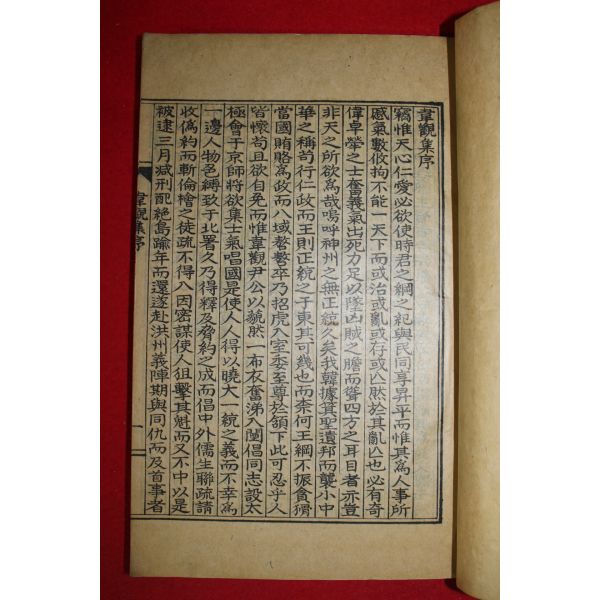 韋觀集序
竊惟天心仁愛必欲使時君之綱之紀與民同享昇平而惟其爲人事所
慼氣數攸拘不能一天下而或治或亂或存或亾然於其亂亾也必有奇
偉卓犖之士奮義氣出死力足以墜凶賊之膽而聳四方之耳目者亦豈
非天之所欲爲哉嗚呼神州之無正統久矣我韓據箕聖遺邦而襲小中
華之稱苟行仁政而王則正統之于東其可幾也而柰何王綱不振貪猾
當國賄賂爲政而八域嫯嫯卒乃招虎入室委至尊於頷下此可忍乎人
皆懷苟且欲自免而惟韋觀尹公以藐然一布衣奮涕入闉倡同志設太
極會于京師將欲集士氣唱國是使人人得以曉大一統之義而不幸爲
一邊人物色縛致于北署久乃得釋及脅約之成而倡中外儒生聯疏請
收僞約而斬倫檜之徒疏不得入因密謀使人狙擊其魁而又不中以是
被逮三月减刑配絶島踰年而還遂赴洪州義陣期與同仇而及首事者
韋觀集序
一